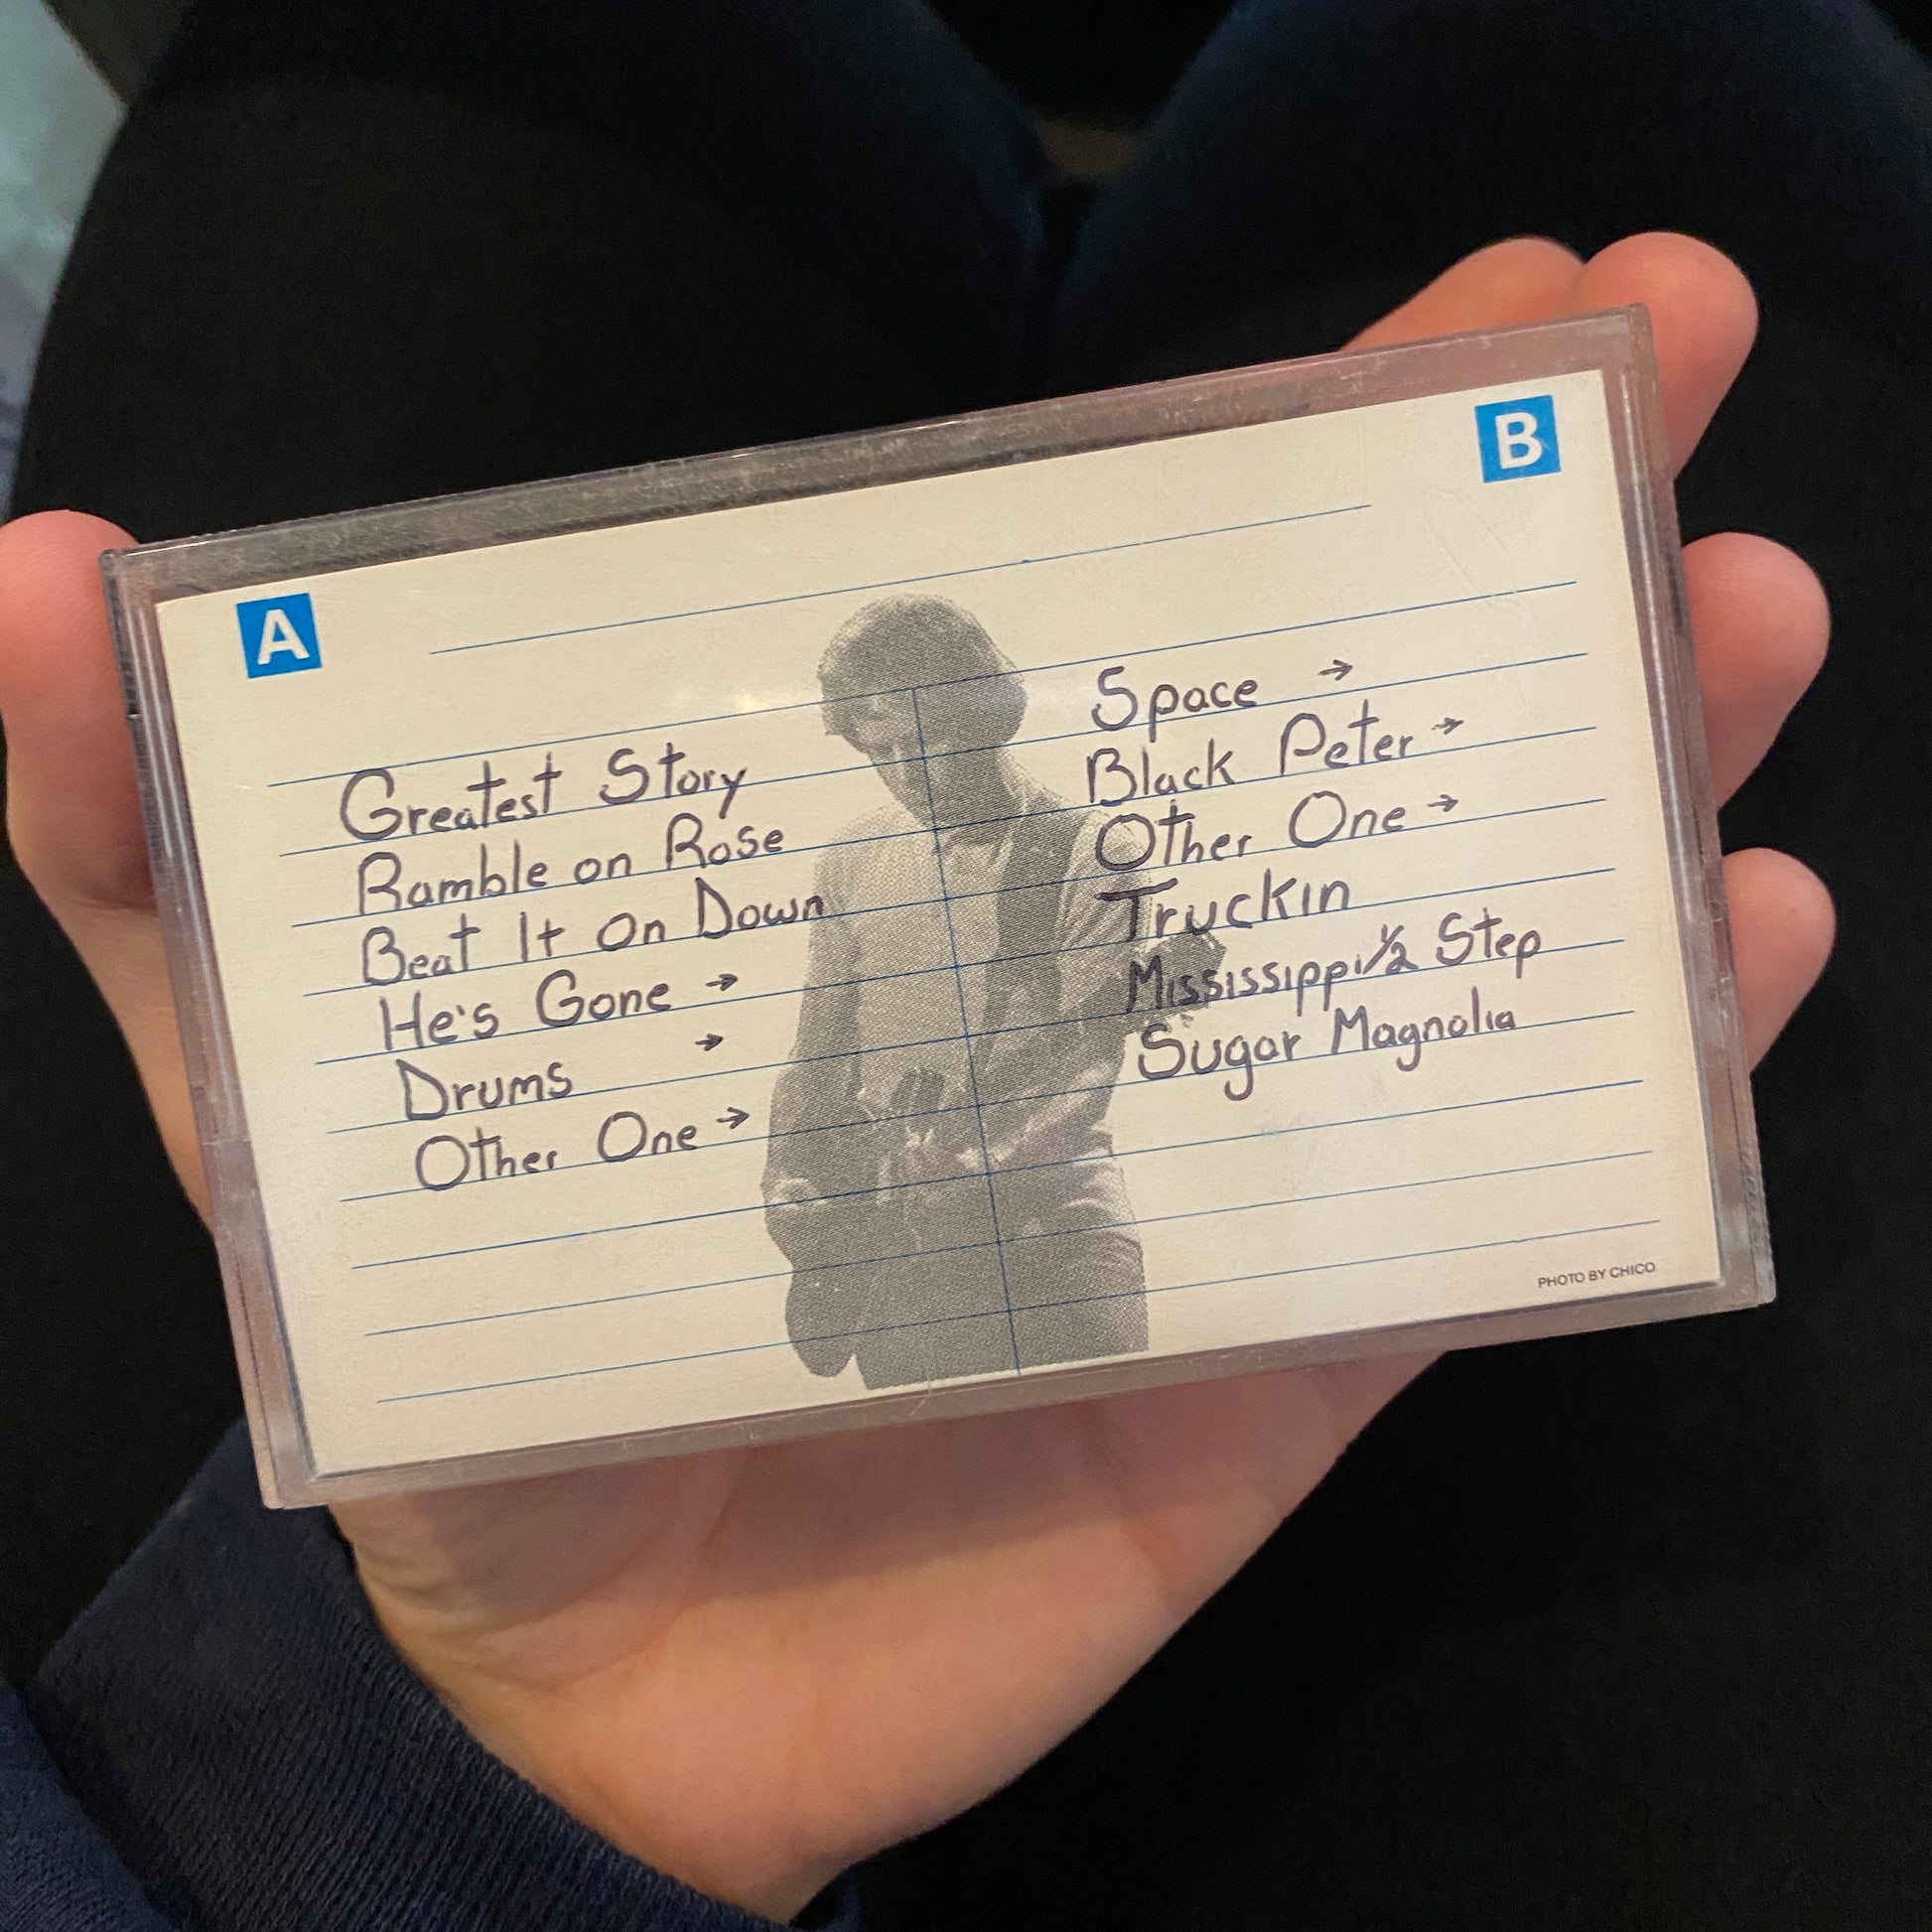 A
Greatest Story
Ramble on Rose
Beat It On Down
He's Gone →
Drums →
Other One →
B
Space →
Black Peter →
Other One →
Truckin
Mississippi ½ Step
Sugar Magnolia
PHOTO BY CHICO